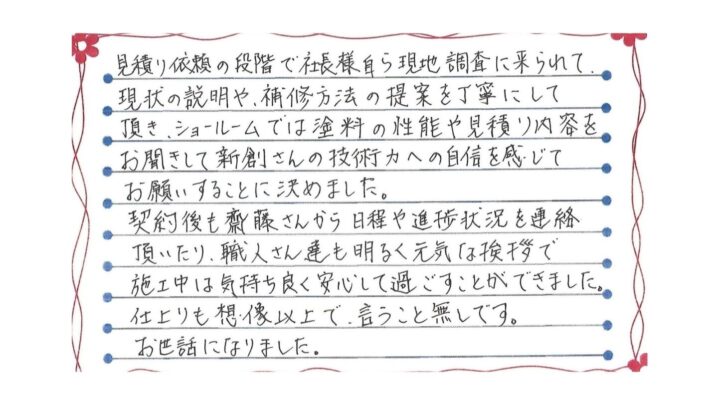 見積り依頼の段階で社長様自ら現地調査に来られて、
現状の説明や、補修方法の提案を丁寧にして
頂き、ショールームでは塗料の性能や見積り内容を
お聞きして新創さんの技術力への自信を感じて
お願いすることに決めました。
契約後も齋藤さんから日程や進捗状況を連絡
頂いたり、職人さん達も明るく元気な挨拶で
施工中は気持ち良く安心して過ごすことができました。
仕上りも想像以上で、言うこと無しです。
お世話になりました。